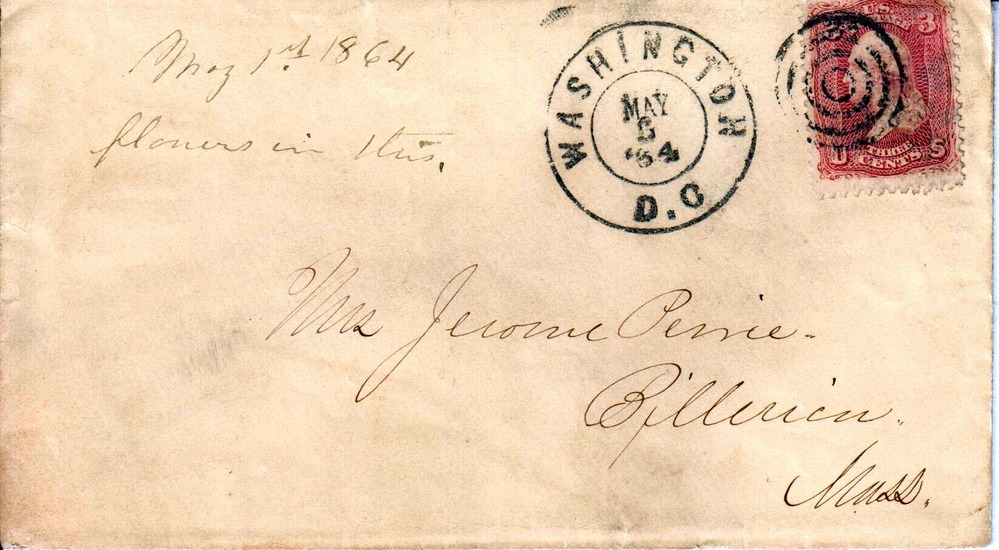 May 1st 1864
flowers in this.
WASHINGTON
MAY
5
'64
D.C
U.S.
3
THREE
CENTS
U S
Mrs Jerome
Billerica.
Mass.